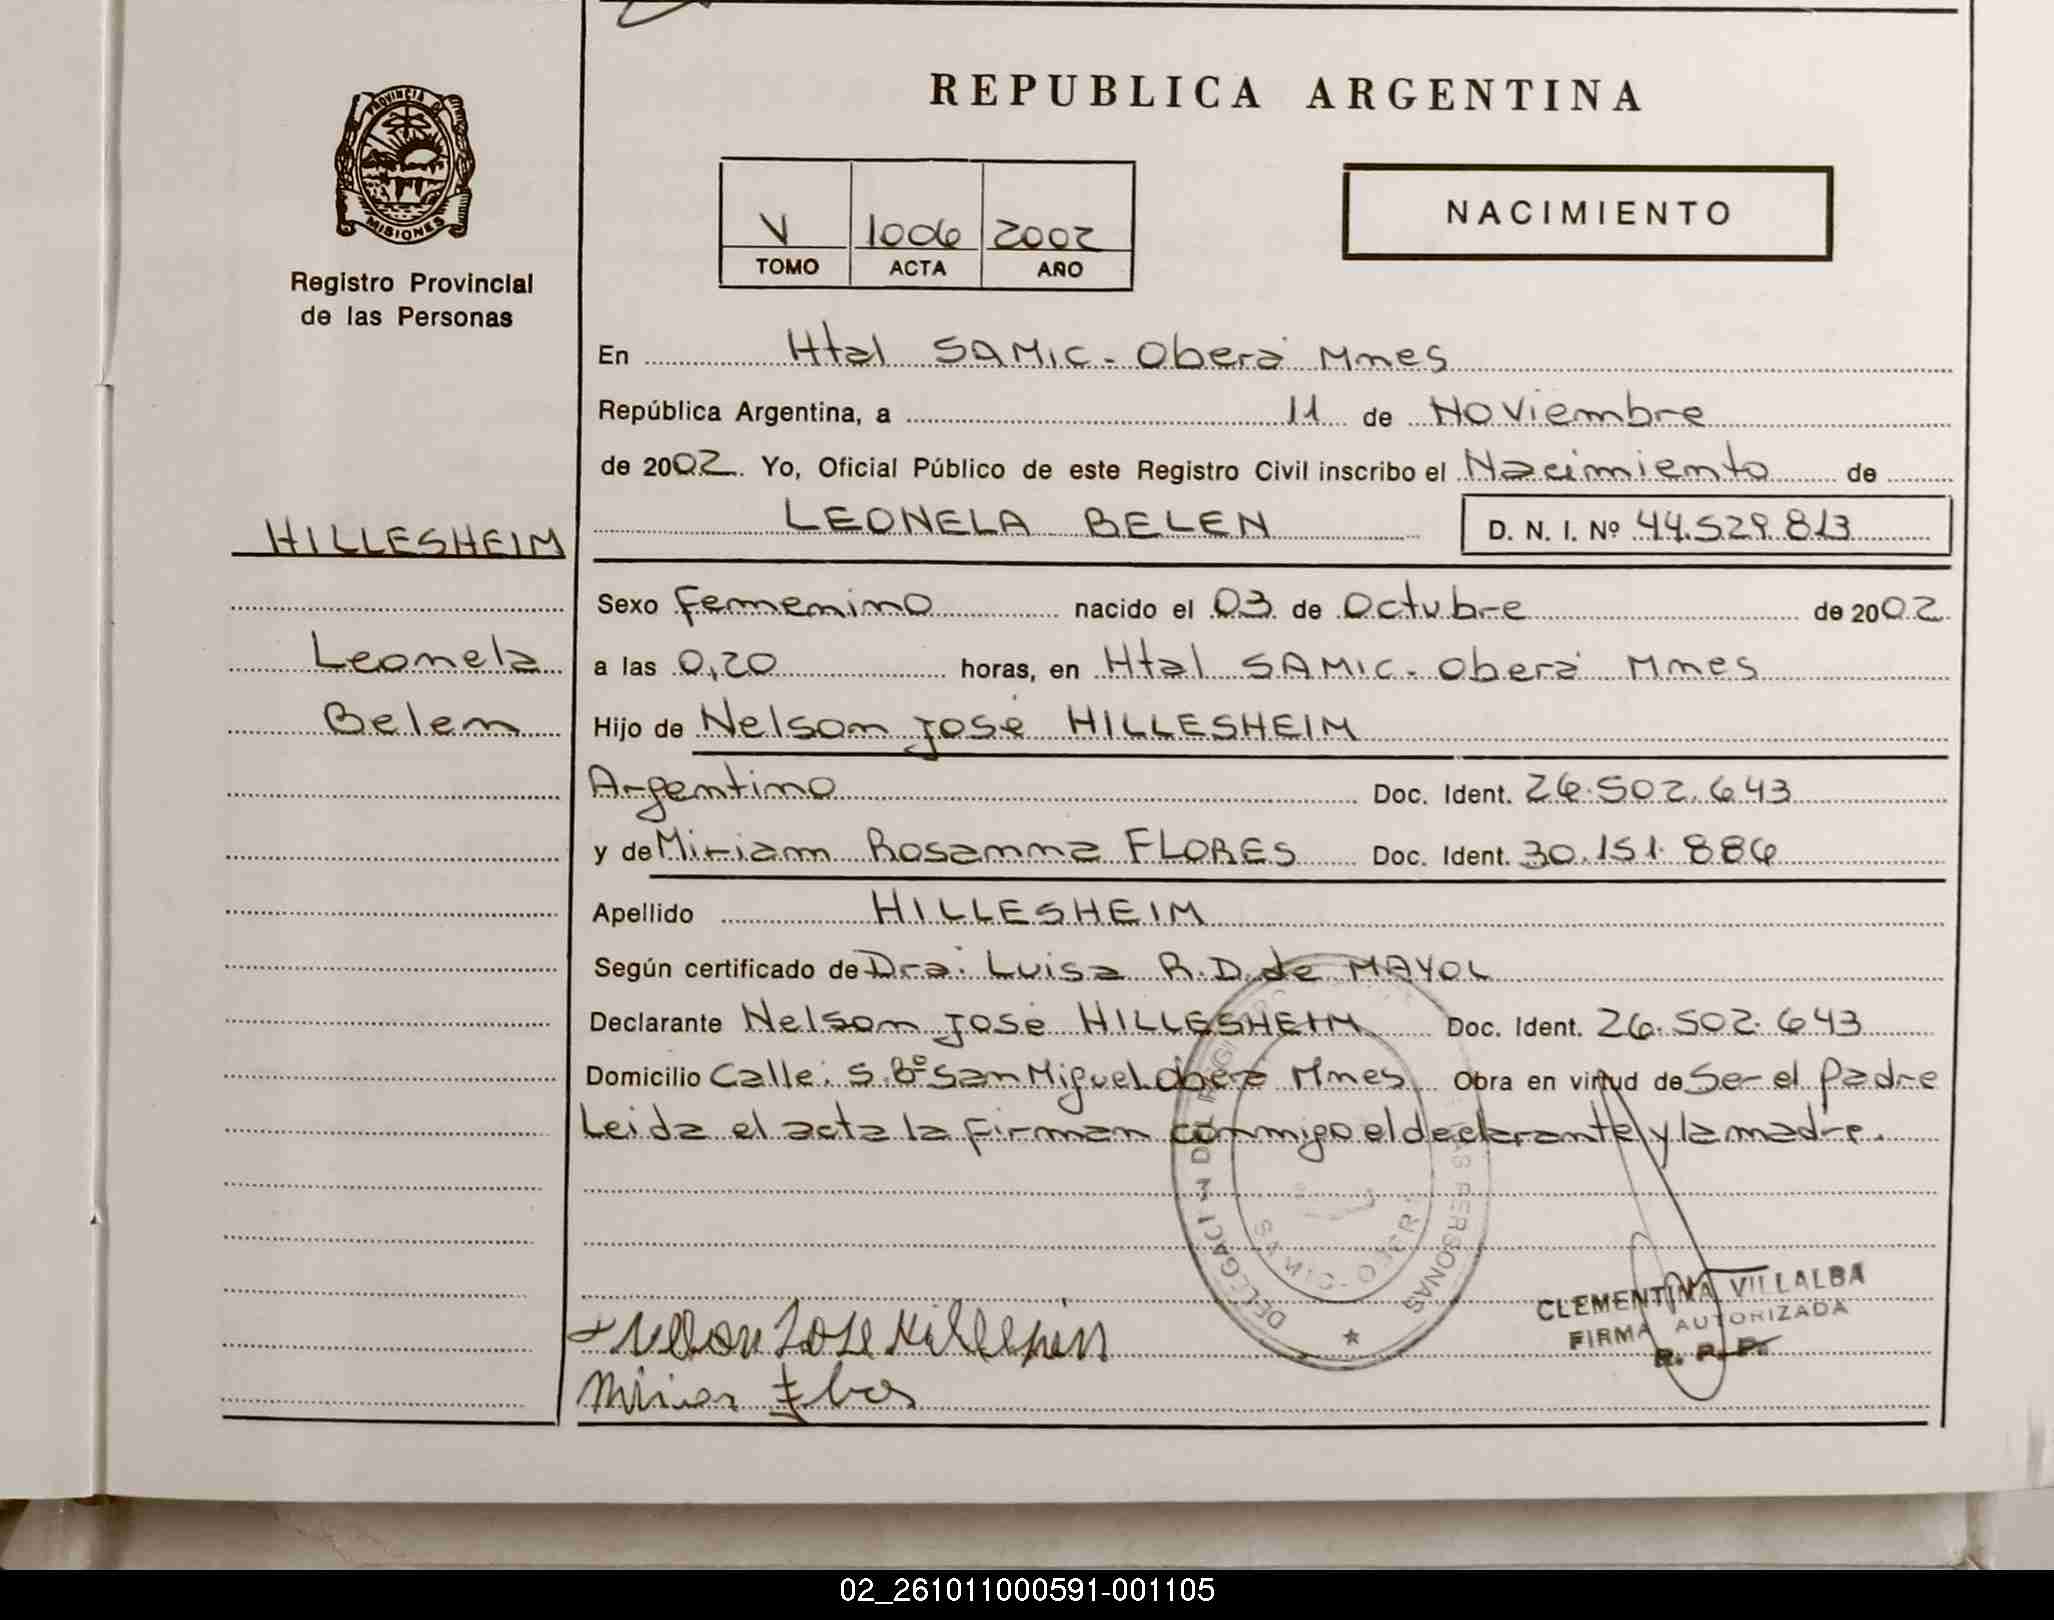 REPUBLICA ARGENTINA
PROVINCIA DE
MISIONES
Registro Provincial
de las Personas
V 1006 2002
TOMO ACTA AÑO
NACIMIENTO
En Htal SAMIC - Oberá Mnes
República Argentina, a 11 de Noviembre
de 2002. Yo, Oficial Público de este Registro Civil inscribo el Nacimiento de
HILLESHEIM
LEONELA BELEN D. N. I. Nº 44.529.813
Sexo Femenino nacido el 03 de Octubre de 2002
Leonela
a las 0,20 horas, en Htal SAMIC - Oberá Mnes
Belen
Hijo de Nelson José HILLESHEIM
Argentino Doc. Ident. 26.502.643
y de Miriam Rosanna FLORES Doc. Ident. 30.151.886
Apellido HILLESHEIM
Según certificado de Dra. Luisa R.D. de MAYOL
Declarante Nelson José HILLESHEIM Doc. Ident. 26.502.643
Domicilio Calle: S. Bº San Miguel Oberá Mnes Obra en virtud de Ser el Padre
Leida el acta la firman conmigo el declarante y la madre.
CLEMENTINA VILLALBA
FIRMA AUTORIZADA
R. P. P.
02_261011000591-001105